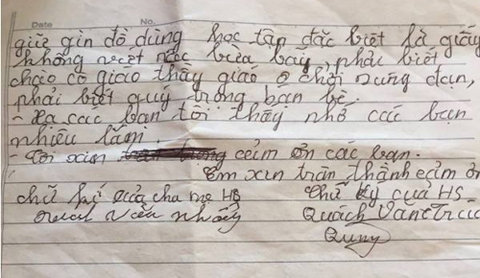 Date No.
giữ gìn đồ dùng học tận đắc biết là giấy
không viết bừa bãy, phải biết
chào cô giáo thầy giáo chơi nưng đạn,
phải biết quý trọng bán bè.
- Xa các bạn tôi thấy nhớ các bạn
nhiều lắm.
- Tôi xin cẻim ơn các bạn.
Em xin trân thành cẻim ơn
chữ kí của cha mẹ HS Chữ ký của HS
Quách Văn
Quny